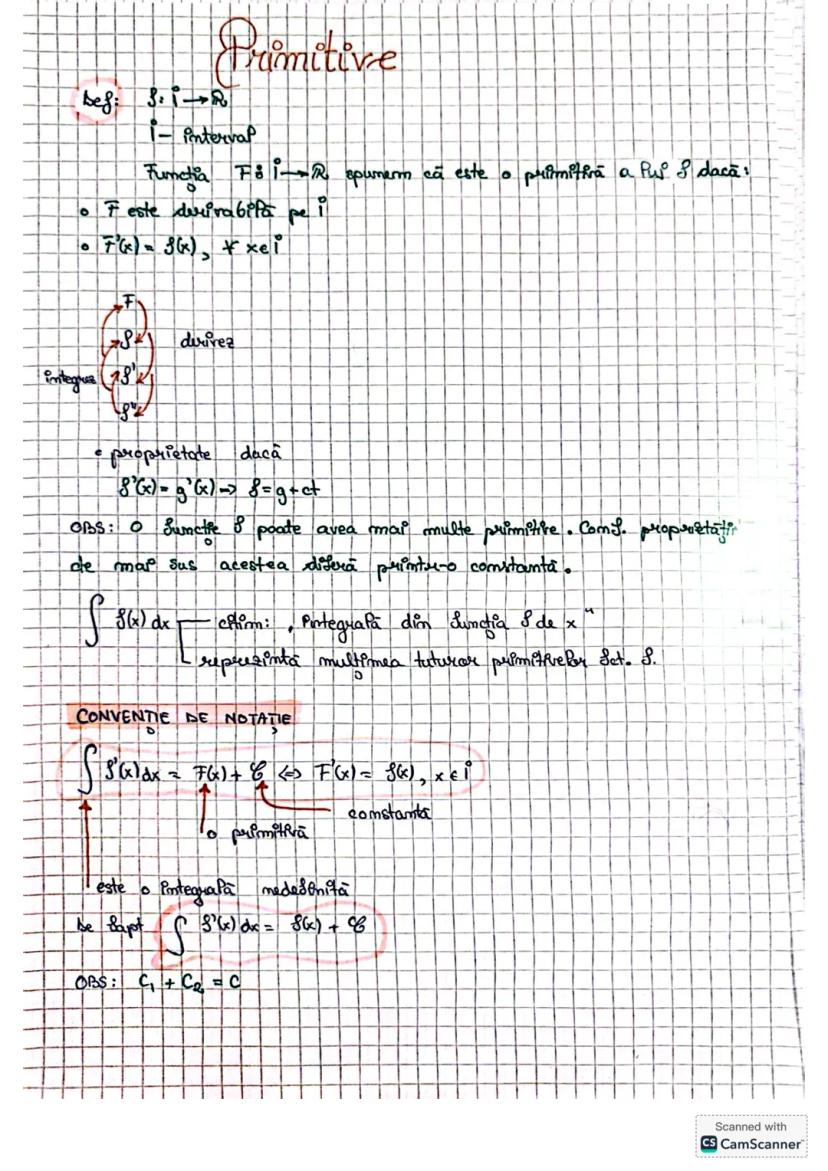 Primitive
Def: f: i → ℝ
i - interval
Funcția F: i → ℝ spunem că este o primitivă a lui f dacă:
• F este derivabilă pe i
• F'(x) = f(x), ∀ x∈i
F
f derivez
integrez f'
f''
• proprietate dacă
f'(x) = g'(x) => f = g + ct
OBS: O funcție f poate avea mai multe primitive. Conf. proprietății
de mai sus acestea diferă printr-o constantă.
∫ f(x) dx citim: „integrală din funcția f de x"
reprezintă mulțimea tuturor primitivelor fct. f.
CONVENȚIE DE NOTAȚIE
∫ f(x) dx = F(x) + C <=> F'(x) = f(x), x ∈ i
constantă
o primitivă
este o integrală nedefinită
De fapt ∫ f'(x) dx = f(x) + C
OBS: C₁ + C₂ = C
Scanned with
CS CamScanner